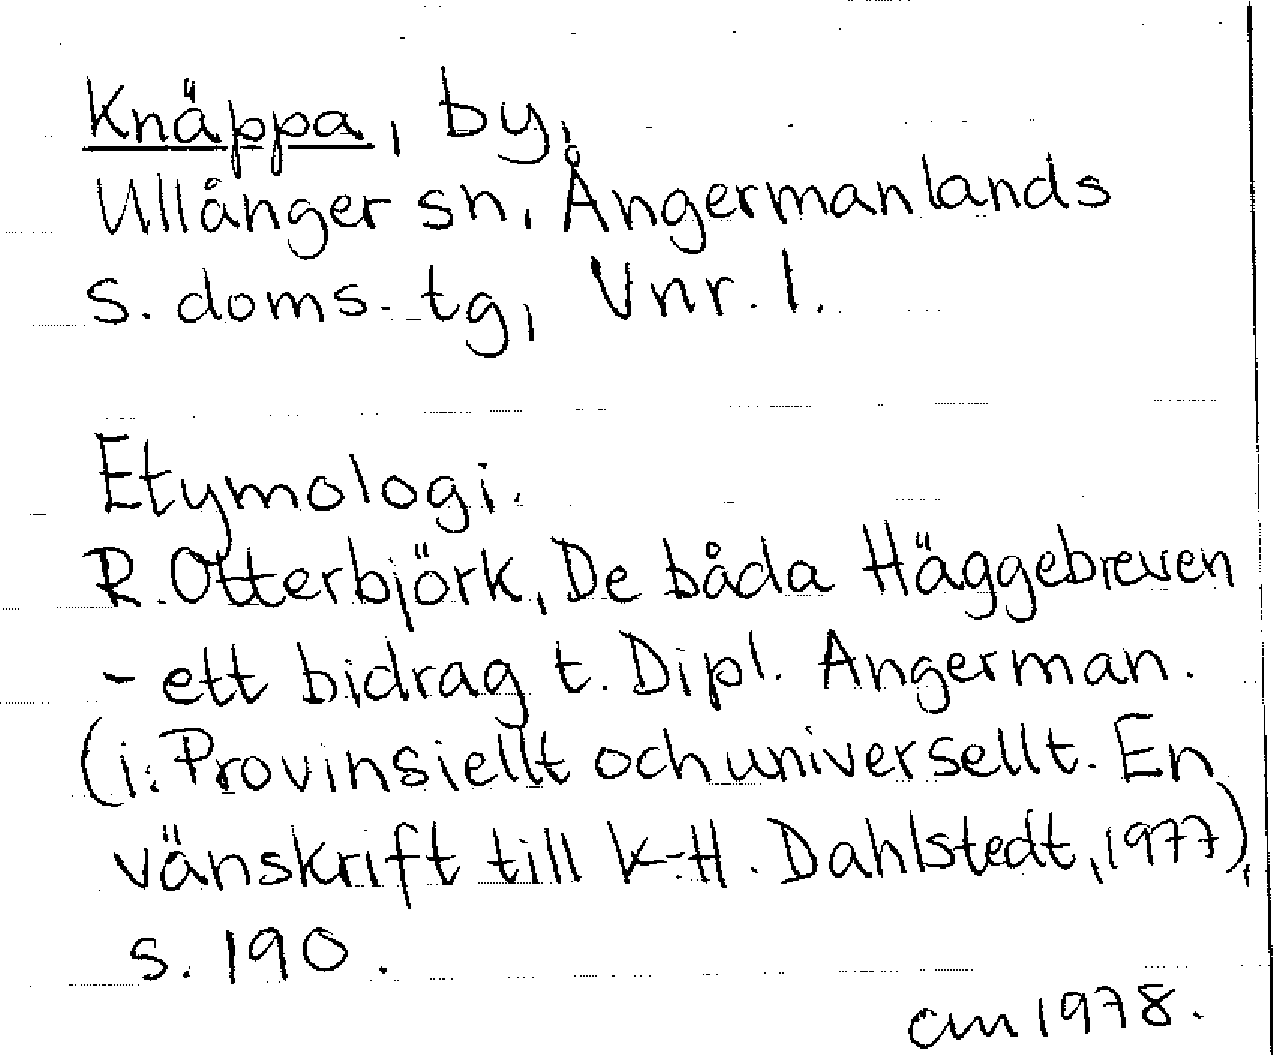 Knäppa, by,
Ullånger sn, Ångermanlands
s. doms.tg, Vnr. 1.
Etymologi.
R. Otterbjörk, De båda Häggebreven
- ett bidrag t. Dipl. Angerman.
(i: Provinsiellt och universellt. En
vänskrift till K-H. Dahlstedt, 1977),
s. 190.
am 1978.